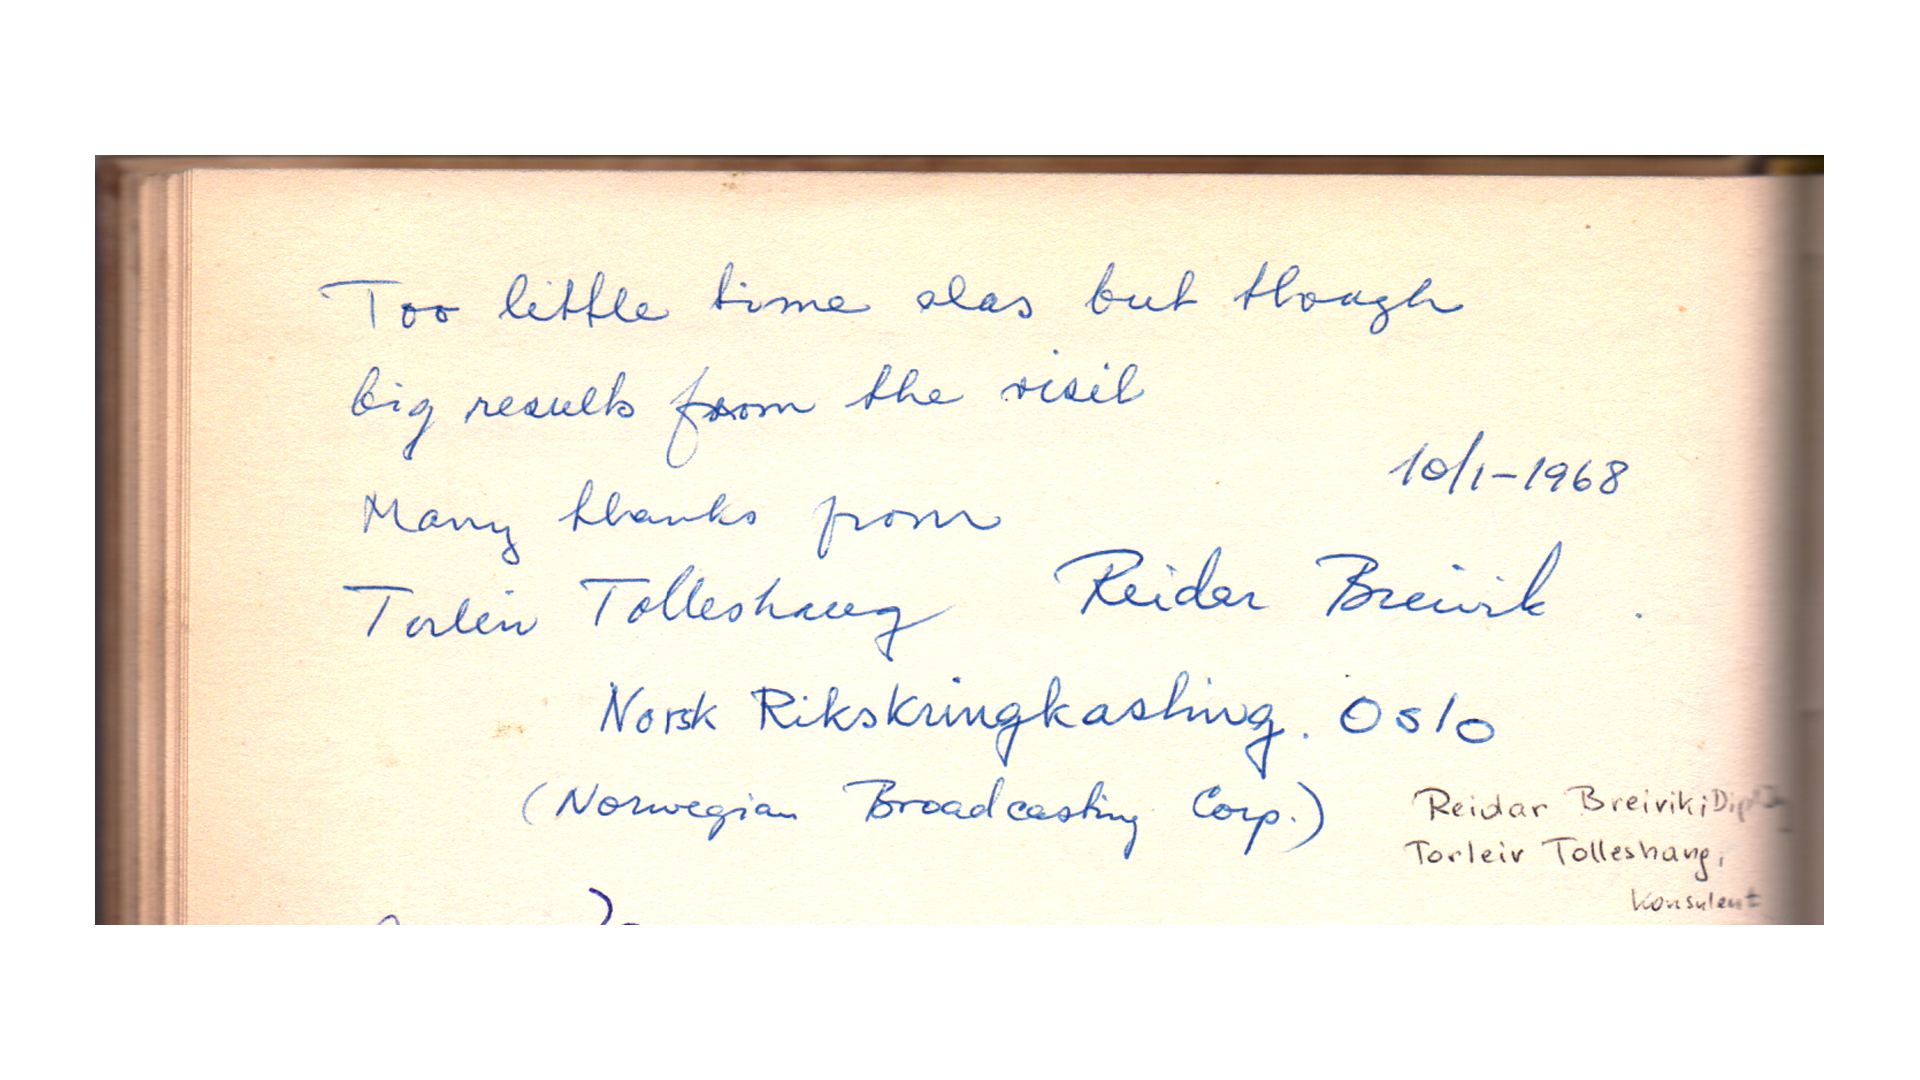 Too little time alas but though
big results from the visit
10/1-1968
Many thanks from
Torleiv Tolleshaug Reidar Breivik.
Norsk Rikskringkasting. Oslo
(Norwegian Broadcasting Corp.)
Reidar Breivik; Dipl.Ing
Torleiv Tolleshaug,
Konsulent